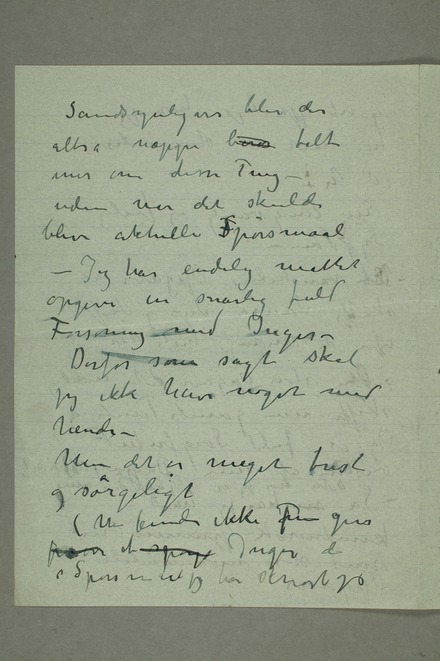 Sandsynligvis blev der
altsa næppe talt
mer om disse Ting –
uden når det skulde
blive aktuelle Spörsmaal
– Jeg har endelig måttet
opgive en snarlig fuld
Forsoning med Inger –
Derfor som sagt skal
jeg ikke have noget med
hende –
Men det er meget trist
og sörgeligt
( ikke
at Inger de
Spörsmål jeg har